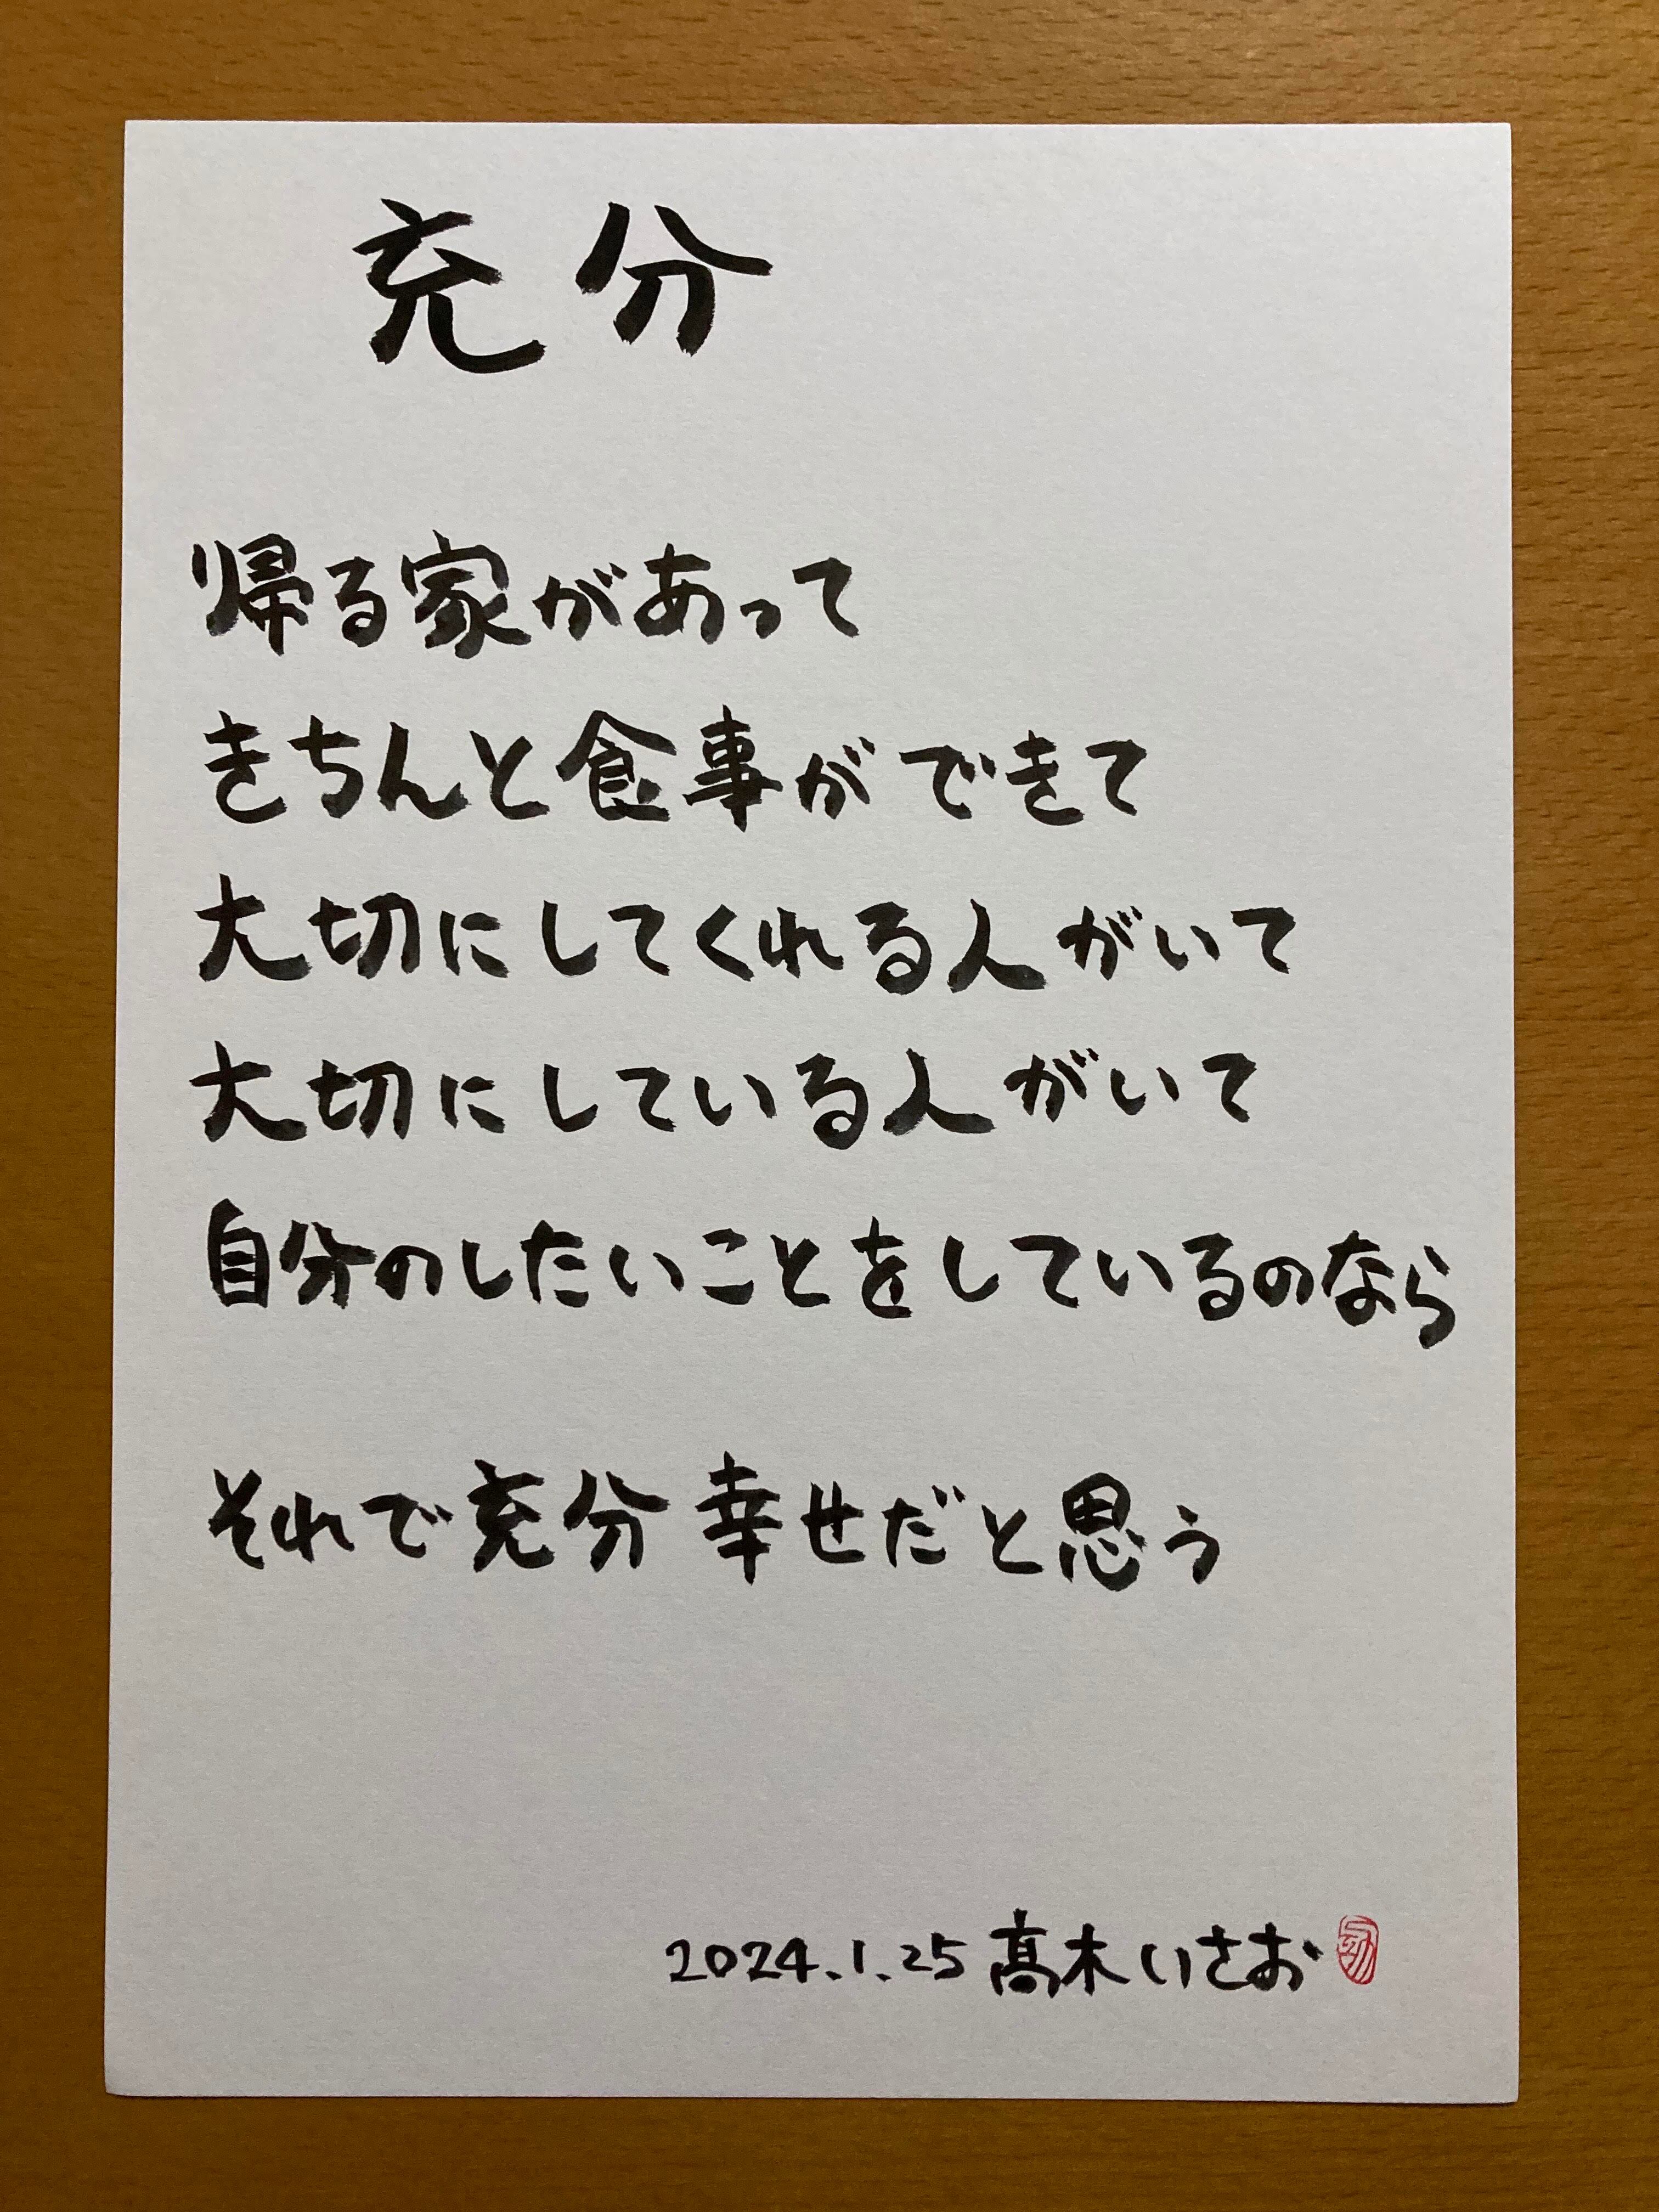 充分
帰る家があって
きちんと食事ができて
大切にしてくれる人がいて
大切にしている人がいて
自分のしたいことをしているのなら
それで充分 幸せだと思う
2024.1.25 髙木いさお